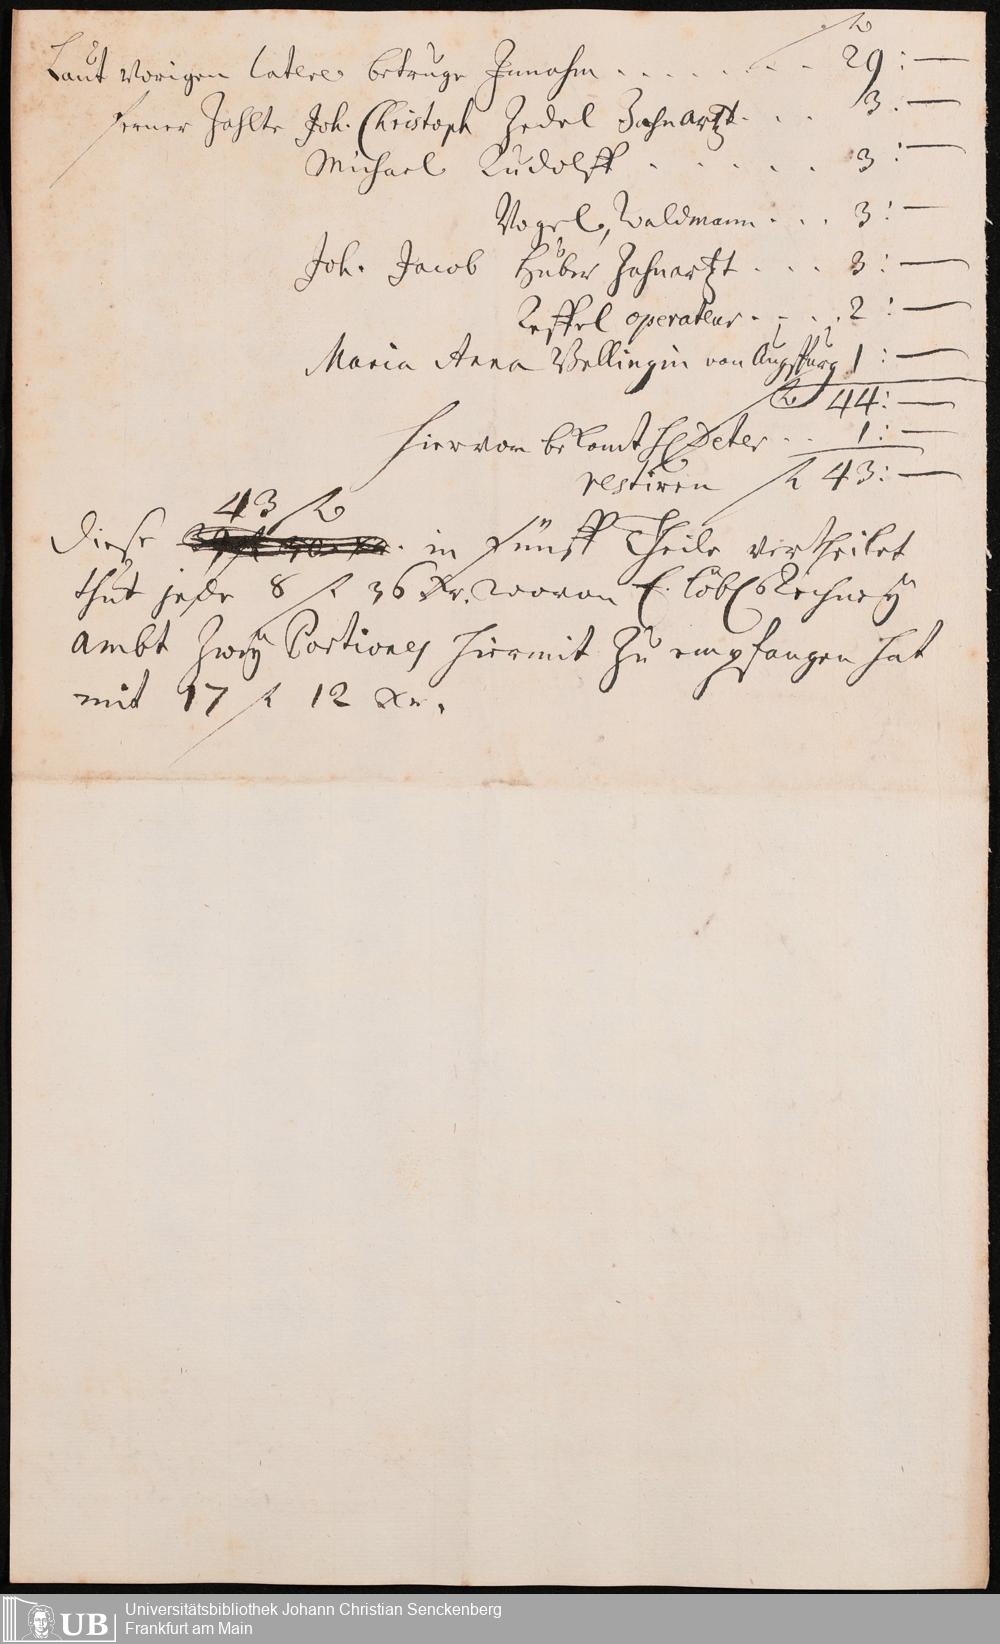 fl
Laut vorigen latere betruge Innahm . . . . . . . . 29: —
ferner Zahlte Joh. Christoph Zedel Zahnartzt . . . 3. —
Michael Rudolff . . . . . 3: —
Vogel, Waldmann . . . 3: —
Joh. Jacob Huber Zahnartzt . . . 3: —
Keffel operateur . . . . 2: —
Maria Anna Wellingin von Augspurg 1: —
fl 44: —
hiervon bekomt H. Peter . . 1: —
restiren fl 43: —
43 fl
Diese in fünff Theile vertheilet
thut jede 8 fl 36 Xr. woron E. löbl. Rechney
ambt Zwey Portiones hiermit Zu empfangen hat
mit 17 fl 12 Xr.
UB
Universitätsbibliothek Johann Christian Senckenberg
Frankfurt am Main